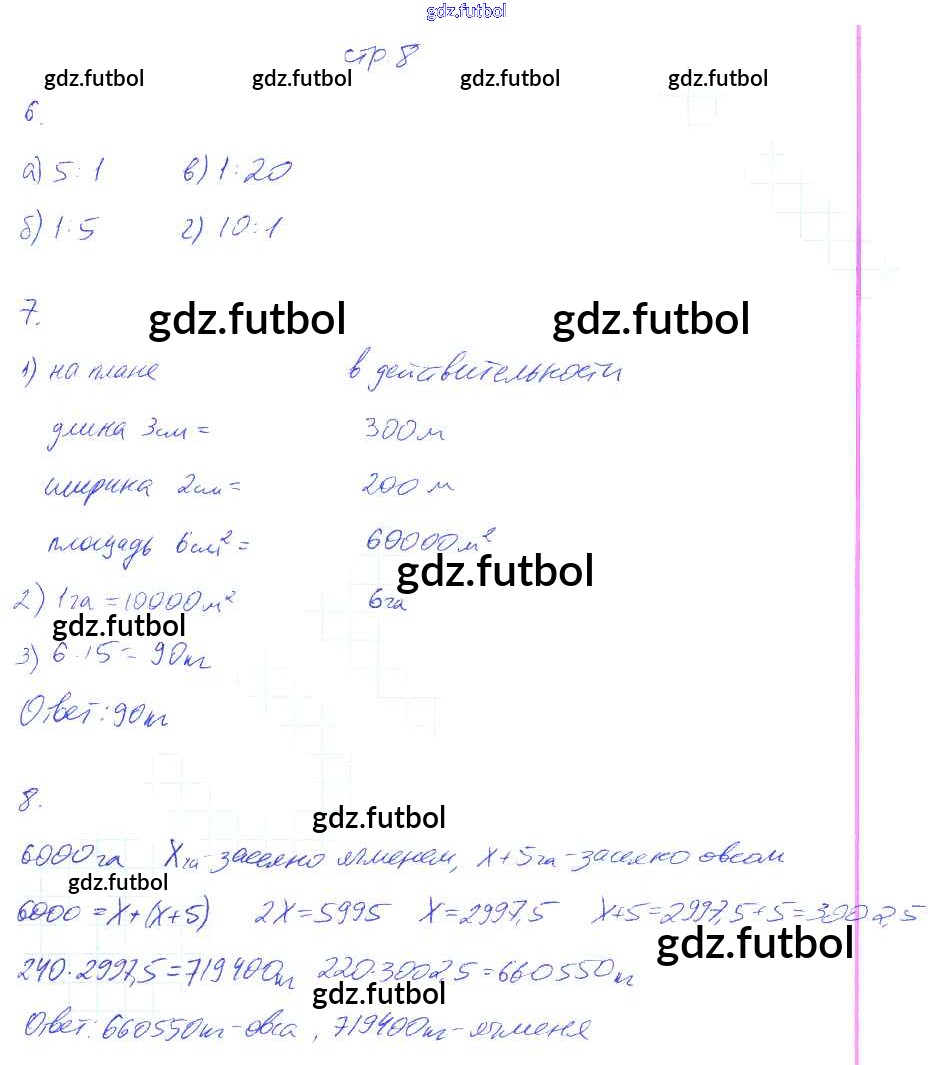 gdz.futbol
стр 8
gdz.futbol gdz.futbol gdz.futbol gdz.futbol
6.
а) 5:1 в) 1:20
б) 1:5 г) 10:1
7.
gdz.futbol gdz.futbol
1) на плане в действительности
длина 3см = 300м
ширина 2см = 200 м
площадь 6см² = 60000м²
gdz.futbol
2) 1га = 10000м² 6га
gdz.futbol
3) 6·15 = 90кг
Ответ: 90кг
8.
gdz.futbol
6000га Xга - засеяно ячменем, x+5га - засеяно овсом
gdz.futbol
6000 = X+(x+5) 2X=5995 X=2997,5 X+5=2997,5+5=3002,5
gdz.futbol
240·2997,5=719400кг 220·3002,5=660550кг
gdz.futbol
Ответ: 660550кг - овса, 719400кг - ячменя